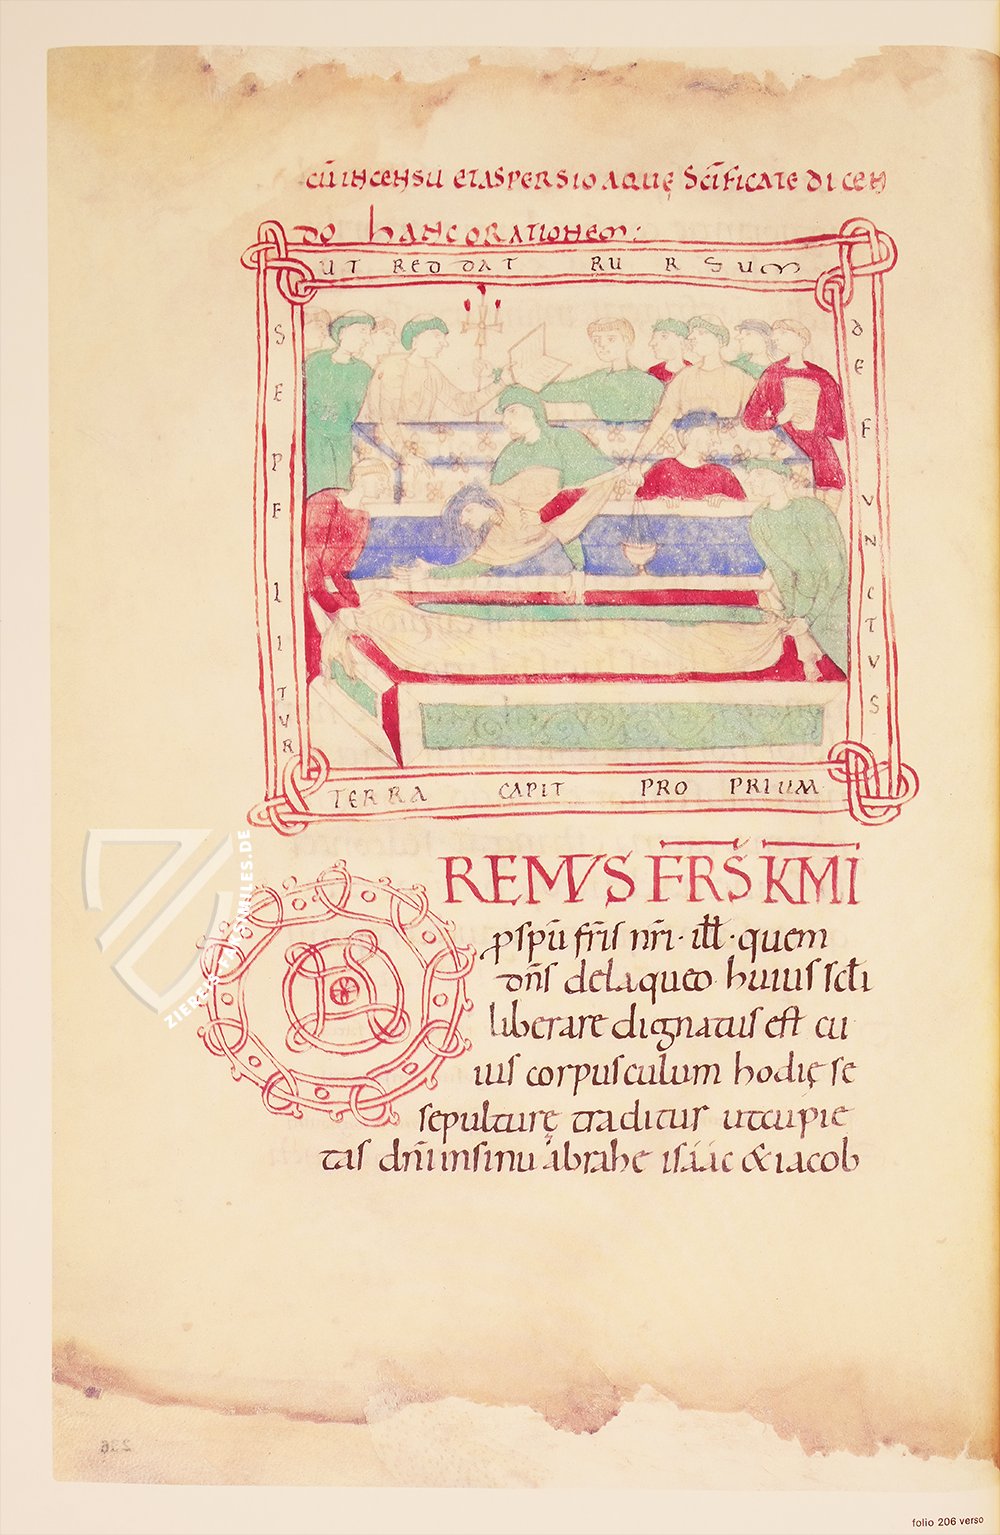 cū incensu et aspersio aquę Sc̄ificate dicen
do hanc orationem:
UT REDDAT RURSUM
SEPELITUR
DEFUNCTUS
TERRA CAPIT PROPRIUM
OREMUS FR̄S K̄MI
p sp̄u fr̄is nr̄i · ill̄ · quem
dn̄s de laqueo huius sc̄li
liberare dignatus est cu
ius corpusculum hodię se
sepulturę traditur ut eu pie
tas dn̄i in sinu abrahe isáác & iacob
ZIEREIS-FAKSIMILES.DE
236
folio 206 verso